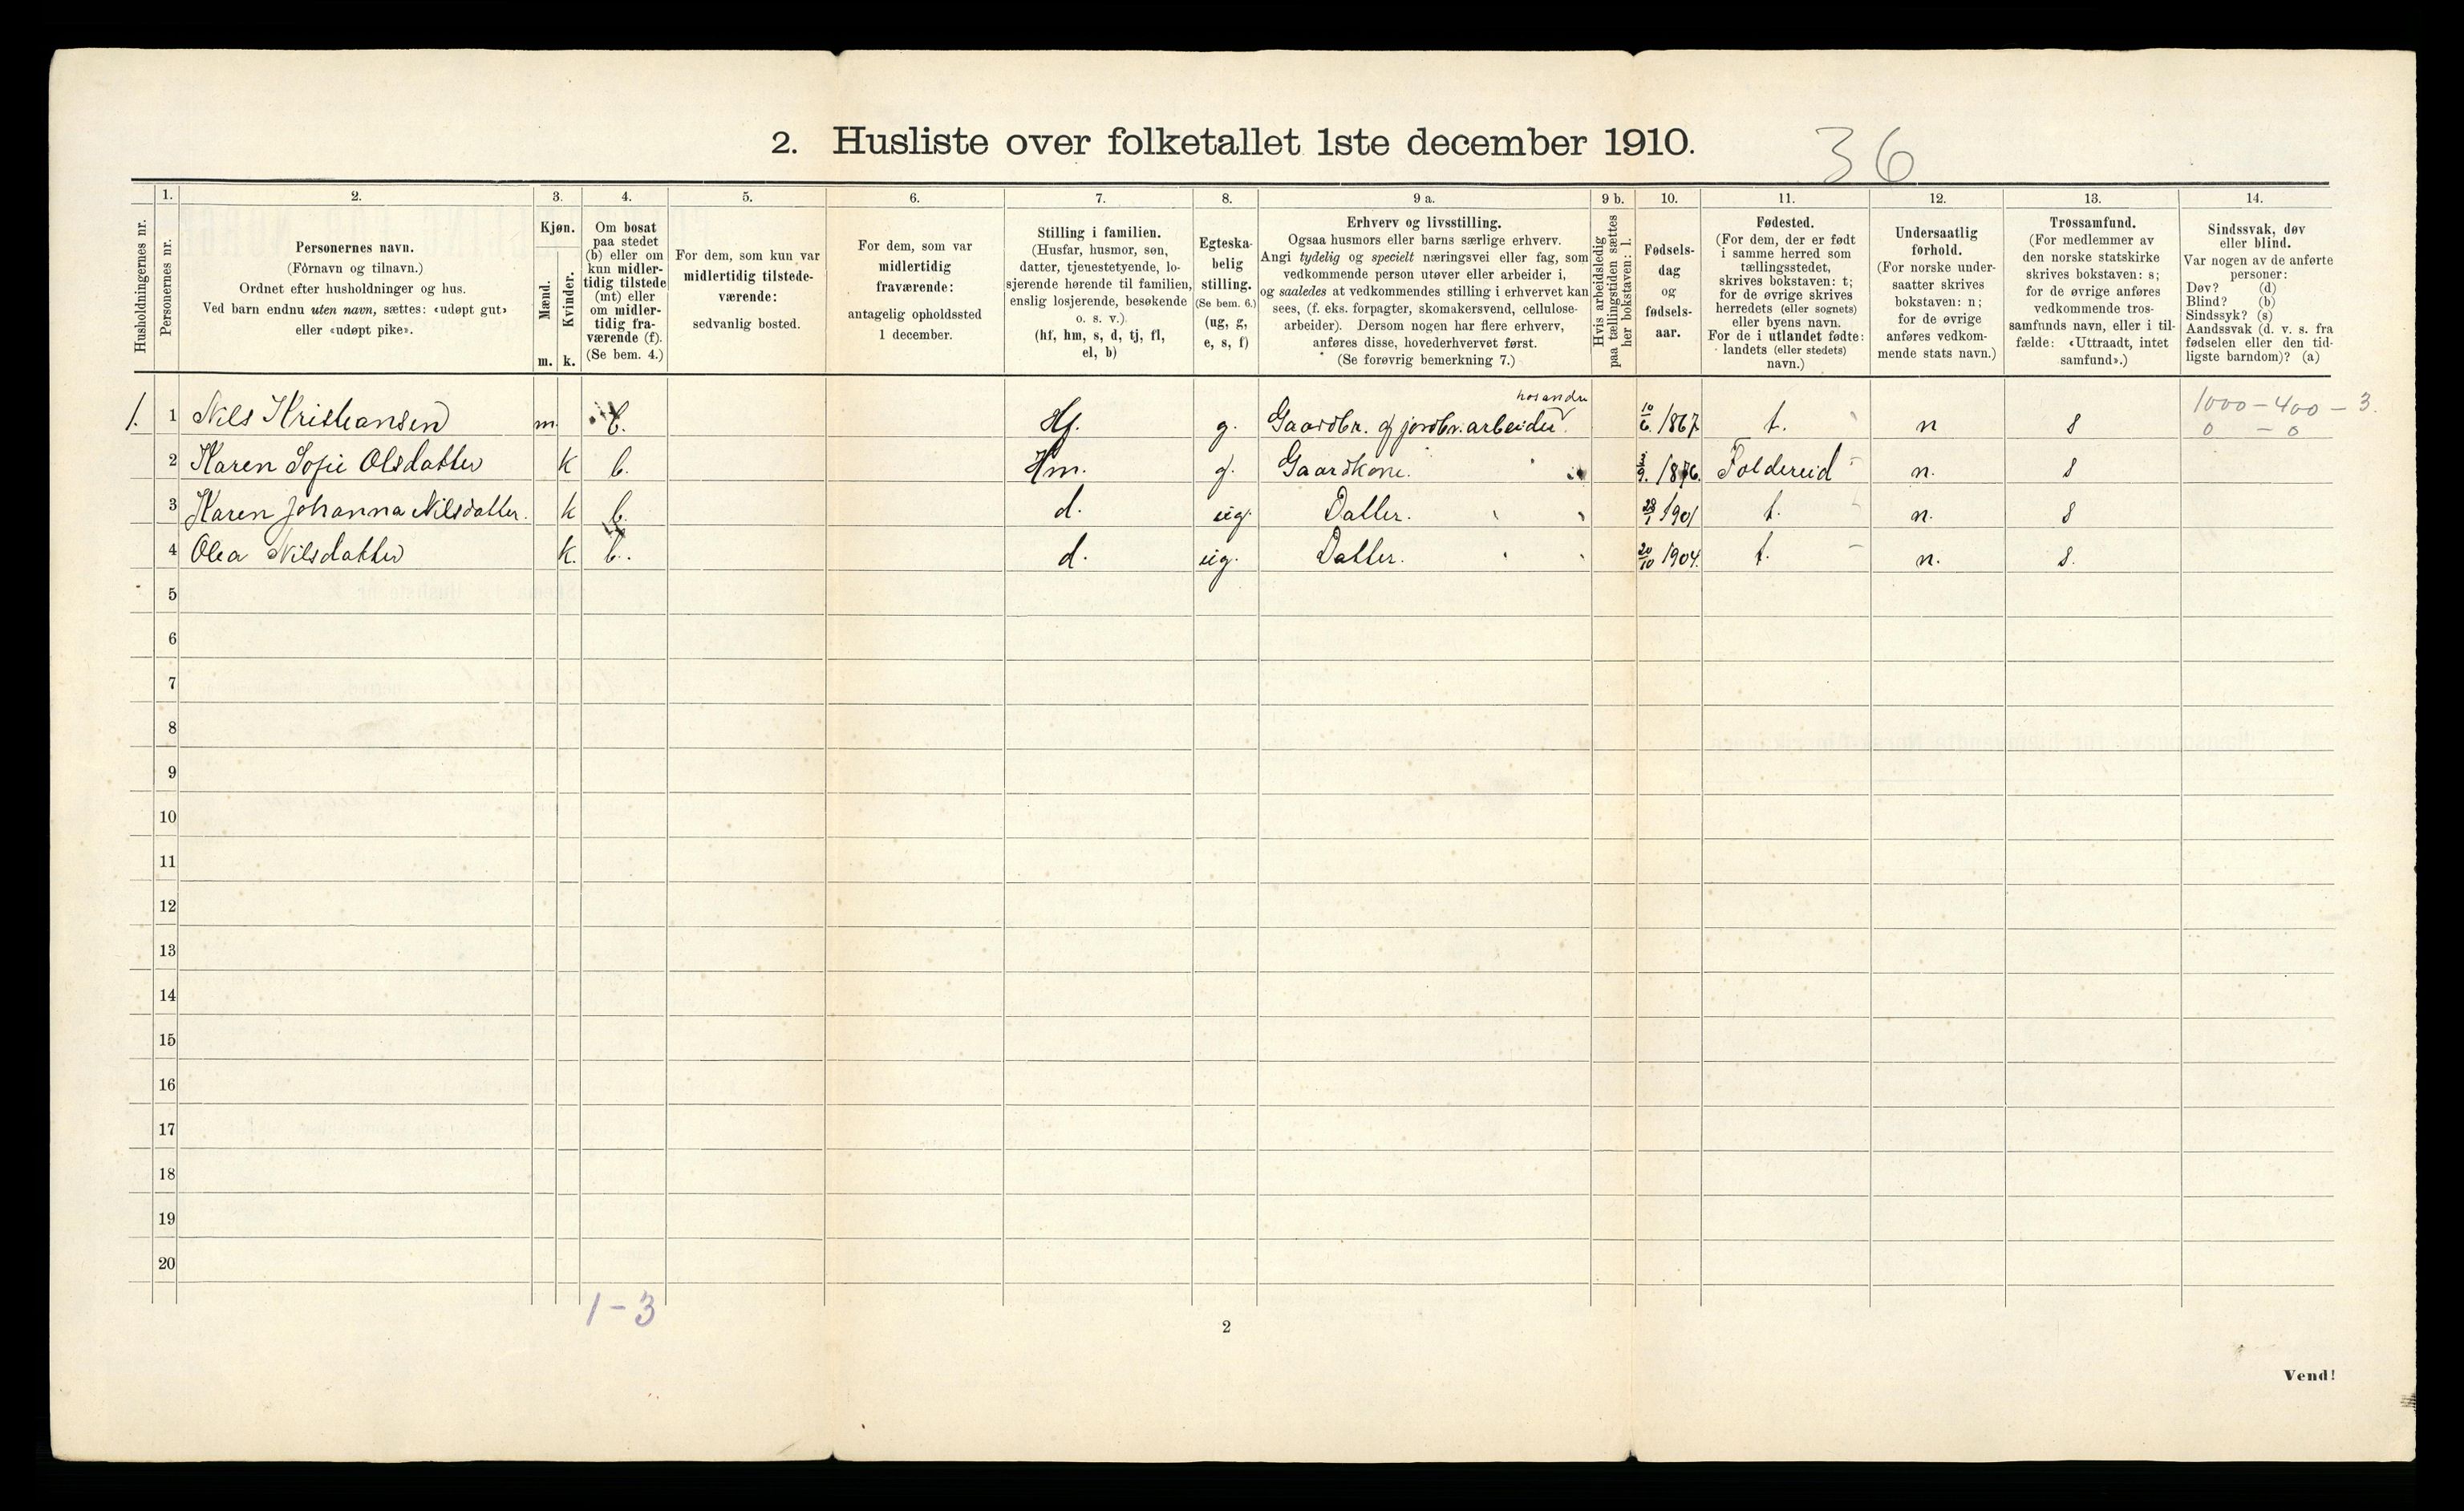 2. Husliste over folketallet 1ste december 1910.
36
Husholdningernes nr.
1.
Personernes nr.
2.
Personernes navn.
(Fornavn og tilnavn.)
Ordnet efter husholdninger og hus.
Ved barn endnu uten navn, sættes: «udøpt gut»
eller «udøpt pike».
3.
Kjøn.
Mænd.
Kvinder.
m. k.
4.
Om bosat
paa stedet
(b) eller om
kun midler-
tidig tilstede
(mt) eller
om midler-
tidig fra-
værende (f).
(Se bem. 4.)
5.
For dem, som kun var
midlertidig tilstede-
værende:
sedvanlig bosted.
6.
For dem, som var
midlertidig
fraværende:
antagelig opholdssted
1 december.
7.
Stilling i familien.
(Husfar, husmor, søn,
datter, tjenestetyende, lo-
sjerende hørende til familien,
enslig losjerende, besøkende
o. s. v.)
(hf, hm, s, d, tj, fl,
el, b)
8.
Egteska-
belig
stilling.
(Se bem. 6.)
(ug, g,
e, s, f)
9 a.
Erhverv og livsstilling.
Ogsaa husmors eller barns særlige erhverv.
Angi tydelig og specielt næringsvei eller fag, som
vedkommende person utøver eller arbeider i,
og saaledes at vedkommendes stilling i erhvervet kan
sees, (f. eks. forpagter, skomakersvend, cellulose-
arbeider). Dersom nogen har flere erhverv,
anføres disse, hovederhvervet først.
(Se forøvrig bemerkning 7.)
9 b.
Hvis arbeidsledig
paa tællingstiden sættes
her bokstaven: l.
10.
Fødsels-
dag
og
fødsels-
aar.
11.
Fødested.
(For dem, der er født
i samme herred som
tællingsstedet,
skrives bokstaven: t;
for de øvrige skrives
herredets (eller sognets)
eller byens navn.
For de i utlandet fødte:
landets (eller stedets)
navn.)
12.
Undersaatlig
forhold.
(For norske under-
saatter skrives
bokstaven: n;
for de øvrige
anføres vedkom-
mende stats navn.)
13.
Trossamfund.
(For medlemmer av
den norske statskirke
skrives bokstaven: s;
for de øvrige anføres
vedkommende tros-
samfunds navn, eller i til-
fælde: «Uttraadt, intet
samfund».)
14.
Sindssvak, døv
eller blind.
Var nogen av de anførte
personer:
Døv? (d)
Blind? (b)
Sindssyk? (s)
Aandssvak (d. v. s. fra
fødselen eller den tid-
ligste barndom)? (a)
hos andre
1000 – 400 – 3.
1. 1 Nils Kristiansen m. b. Hf. g. Gaardbr. og jordbr. arbeider. 10/6. 1867. t. n s
0 – 0
2 Karen Sofie Olsdatter k b. Hm. g. Gaardkone. 1876. Foldereid n. s
3 Karen Johanna Nilsdatter. k b. d. ug. Datter. 1901 t. n. s
4 Olea Nilsdatter k. b. d. ug. Datter. 20/10 1904. t. n. s.
5
6
7
8
9
10
11
12
13
14
15
16
17
18
19
20
1 – 3
2
Vend!